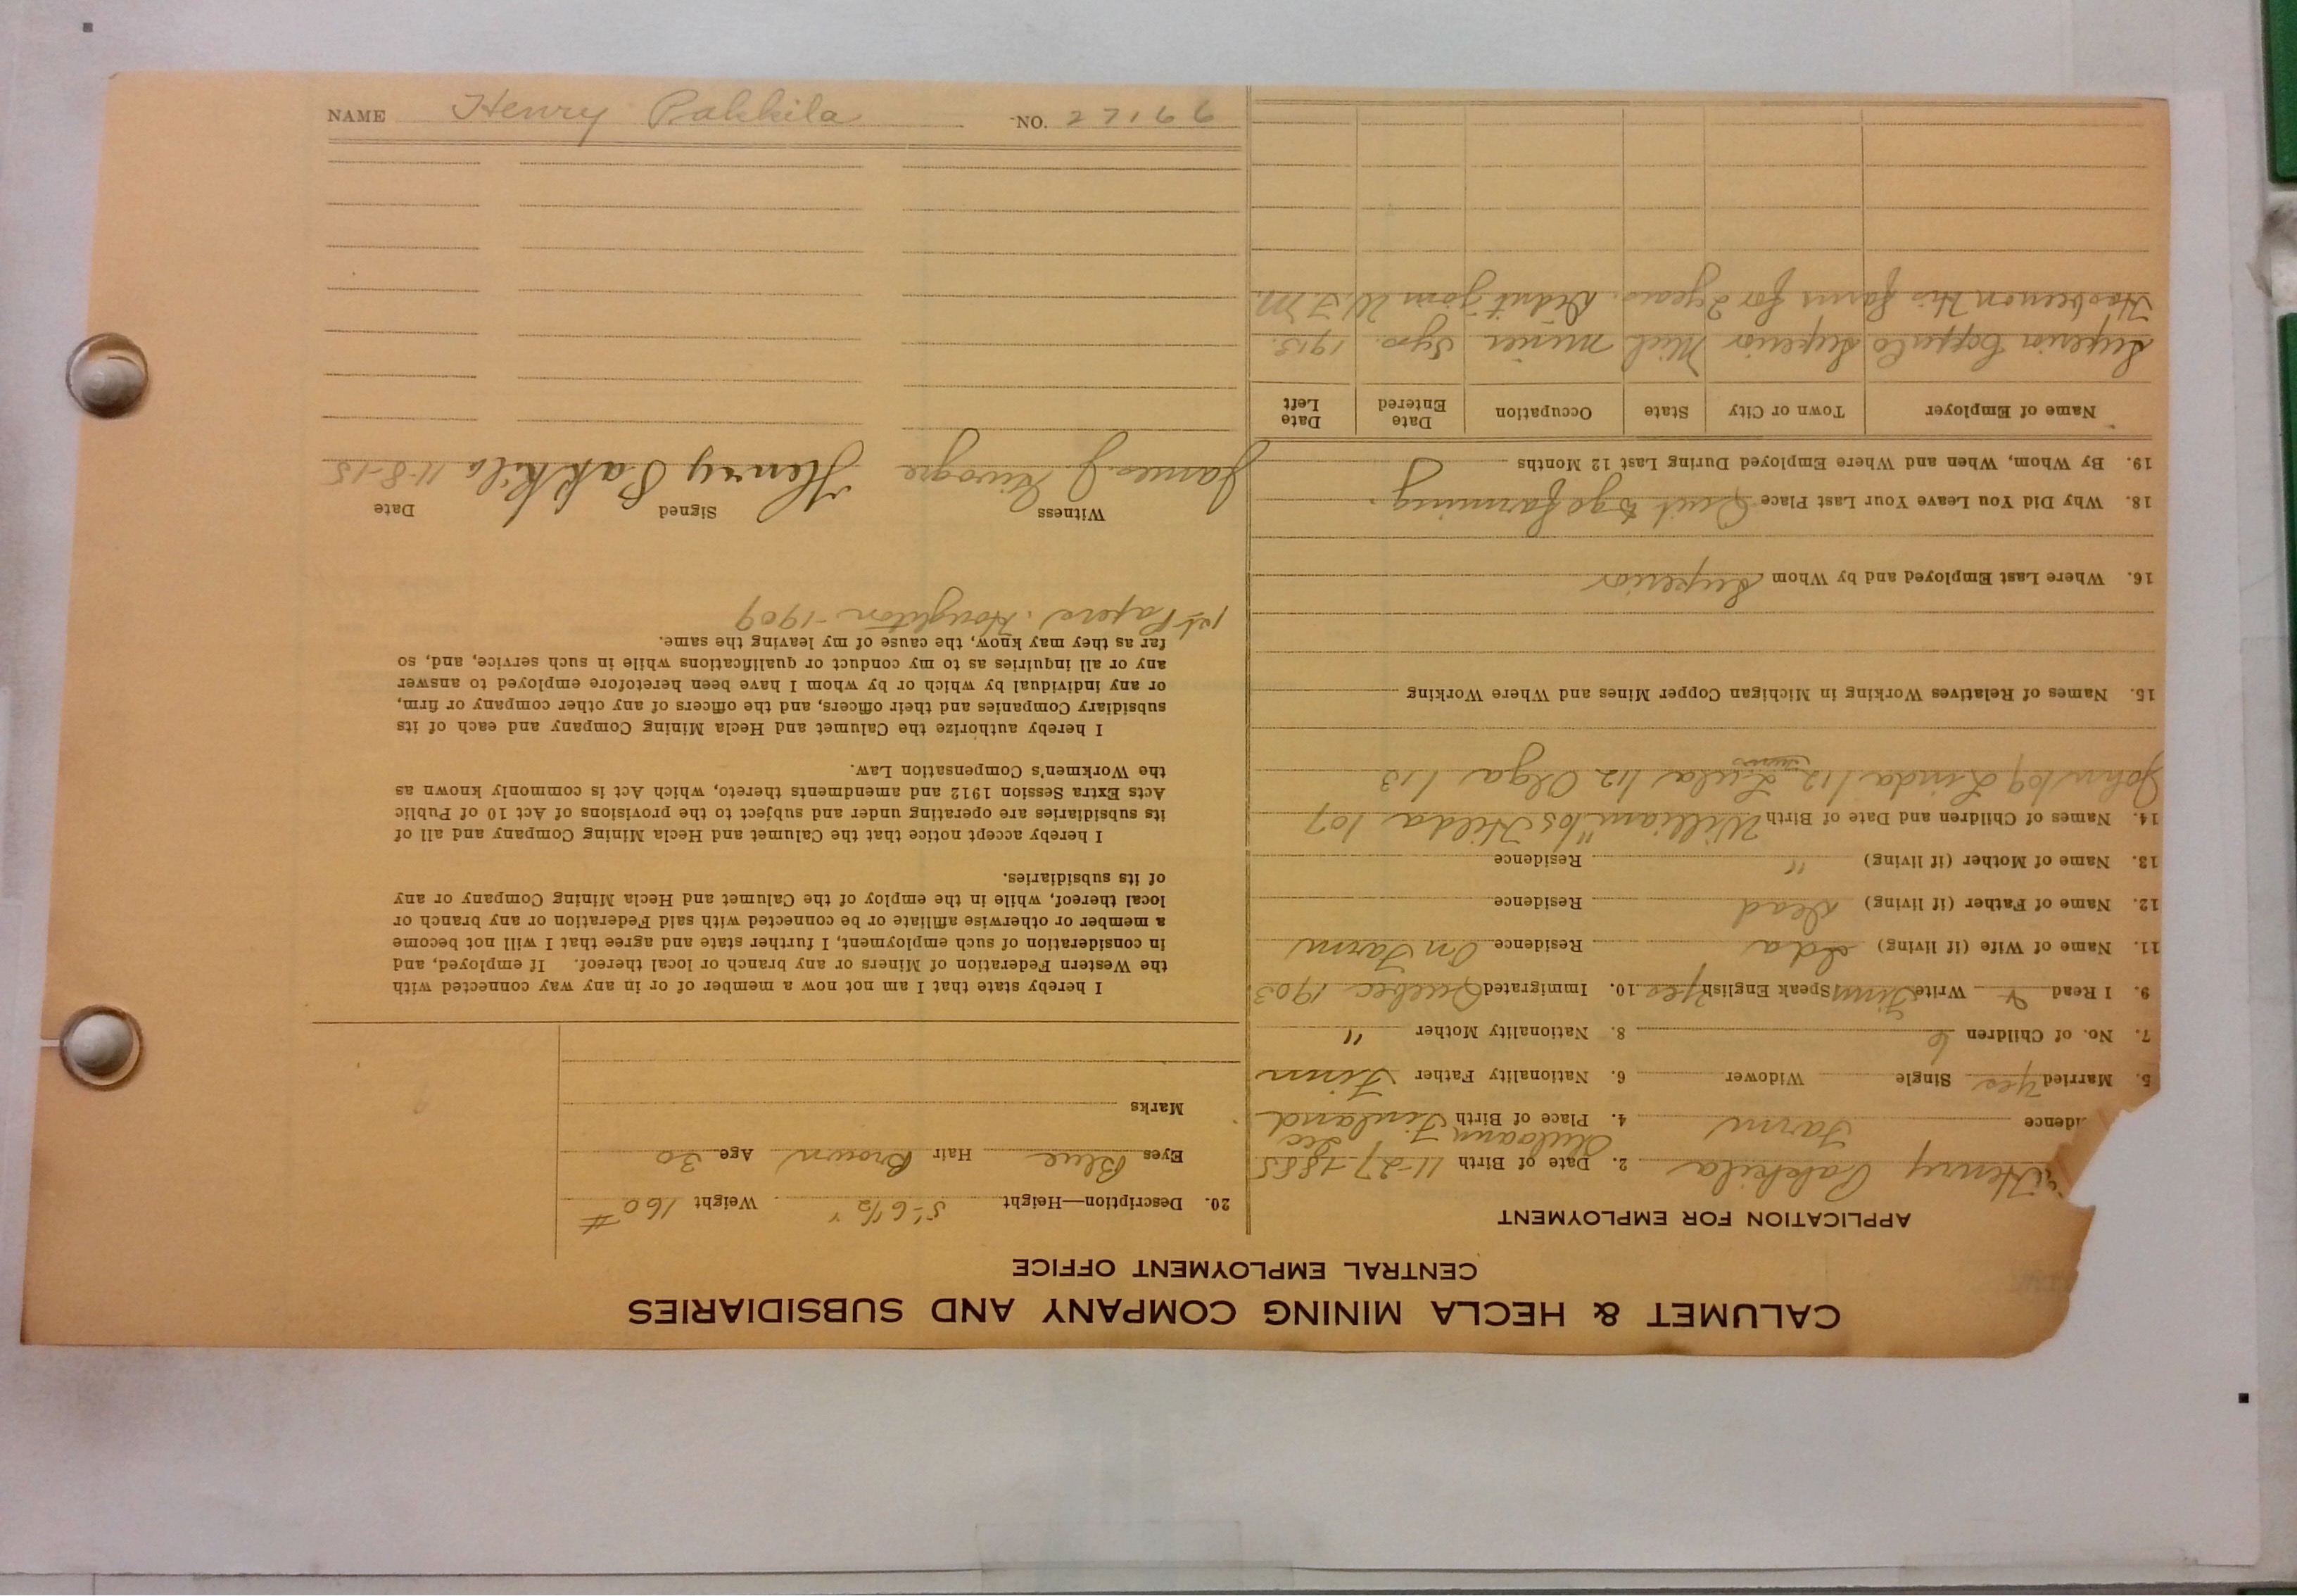 CALUMET & HECLA MINING COMPANY AND SUBSIDIARIES
CENTRAL EMPLOYMENT OFFICE
APPLICATION FOR EMPLOYMENT
Henry Pakkila 2. Date of Birth 11-27-1885
idence Farm 4. Place of Birth Finland
5. Married Yes Single Widower 6. Nationality Father Finn
7. No. of Children 6 8. Nationality Mother "
9. I Read & Write Finn Speak English Yes 10. Immigrated Quebec 1903
11. Name of Wife (if living) Ida Residence On Farm
12. Name of Father (if living) Dead Residence
13. Name of Mother (if living) " Residence
14. Names of Children and Date of Birth William "/05 Hilda /07
John /09 Linda /12 Lula /12 Olga /13
twins
15. Names of Relatives Working in Michigan Copper Mines and Where Working
16. Where Last Employed and by Whom Superior
18. Why Did You Leave Your Last Place Quit to go farming.
19. By Whom, When and Where Employed During Last 12 Months
Name of Employer Town or City State Occupation Date Entered Date Left
Superior Copper Co Superior Mich miner 3yrs. 1913.
Has been on His farm for 2 years. Didn't join W.F.M.
20. Description—Height 5'-6 1/2" Weight 160 #
Eyes Blue Hair Brown Age 30
Marks
I hereby state that I am not now a member of or in any way connected with
the Western Federation of Miners or any branch or local thereof. If employed, and
in consideration of such employment, I further state and agree that I will not become
a member or otherwise affiliate or be connected with said Federation or any branch or
local thereof, while in the employ of the Calumet and Hecla Mining Company or any
of its subsidiaries.
I hereby accept notice that the Calumet and Hecla Mining Company and all of
its subsidiaries are operating under and subject to the provisions of Act 10 of Public
Acts Extra Session 1912 and amendments thereto, which Act is commonly known as
the Workmen's Compensation Law.
I hereby authorize the Calumet and Hecla Mining Company and each of its
subsidiary Companies and their officers, and the officers of any other company or firm,
or any individual by which or by whom I have been heretofore employed to answer
any or all inquiries as to my conduct or qualifications while in such service, and, so
far as they may know, the cause of my leaving the same.
1st Papers. Houghton - 1909
Witness Signed Date
James J. Henry Pakkila 11-8-15
NAME Henry Pakkila NO. 27166